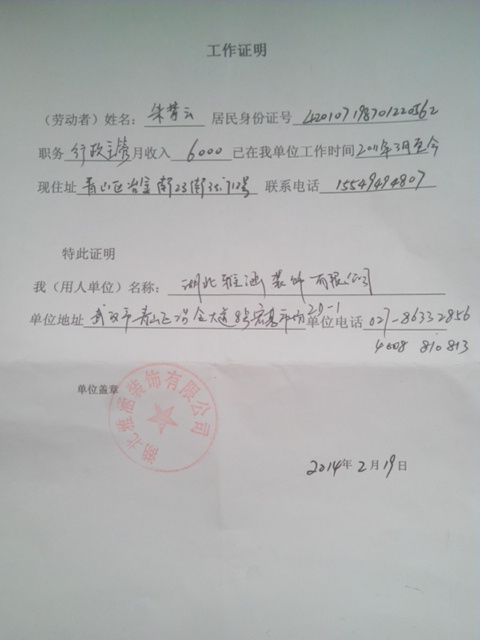 工作证明
(劳动者)姓名:朱梦云 居民身份证号 420107198701220562
职务 行政主管 月收入 6000 已在我单位工作时间 2011年3月至今
现住址 青山区冶金街23街35-712号 联系电话 15549494807
特此证明
我(用人单位)名称:湖北雅涵装饰有限公司
单位地址 武汉市青山区冶金大道 20-1 单位电话 027-86332856
4008 810 813
单位盖章
湖北雅涵装饰有限公司
2014年2月19日